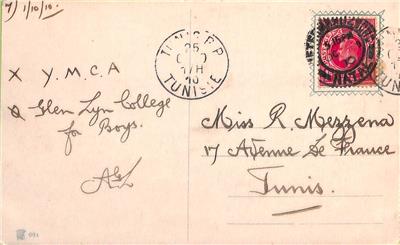 7) 1/10/10.
TUNIS R.P.
25
10
TUNISIE
X Y.M.C.A
Glen Lyn College
for Boys.
Miss R. Mezzena
17 Avenue de France
Tunis.
NATAL